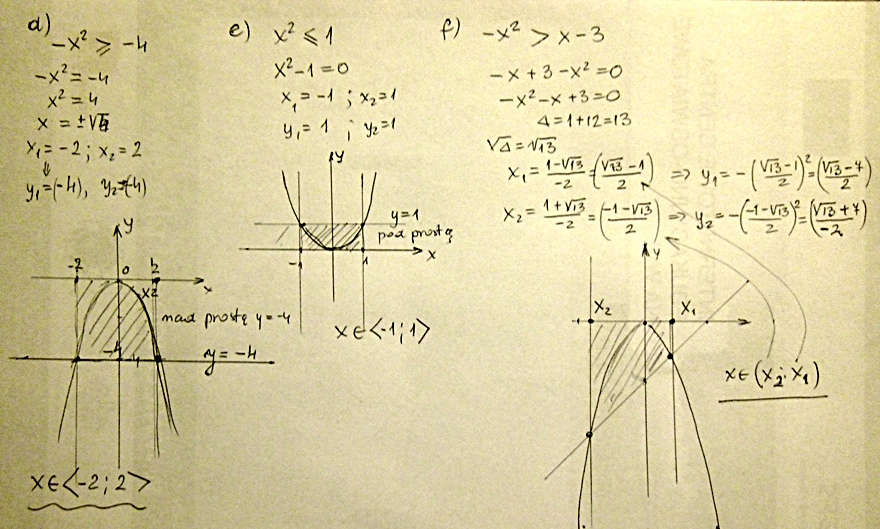 d)
-x² ≥ -4
-x² = -4
x² = 4
x = ±√4
x₁ = -2 ; x₂ = 2
⇓
y₁ = (-4), y₂ = (-4)
y
-2 0 2 x
x2
nad prostą y = -4
-4 y = -4
x ∈ <-2 ; 2>
e) x² ≤ 1
x² - 1 = 0
x₁ = -1 ; x₂ = 1
y₁ = 1 ; y₂ = 1
y
y = 1
pod prostą
-1 1 x
x ∈ <-1 ; 1>
f) -x² > x - 3
-x + 3 - x² = 0
-x² - x + 3 = 0
Δ = 1 + 12 = 13
√Δ = √13
x₁ = (1-√13)/-2 = ((√13-1)/2) ⇒ y₁ = -((√13-1)/2)² = ((√13-7)/2)
x₂ = (1+√13)/-2 = ((-1-√13)/2) ⇒ y₂ = -((-1-√13)/2)² = ((√13+7)/-2)
y
x₂ x₁
x ∈ (x₂ ; x₁)